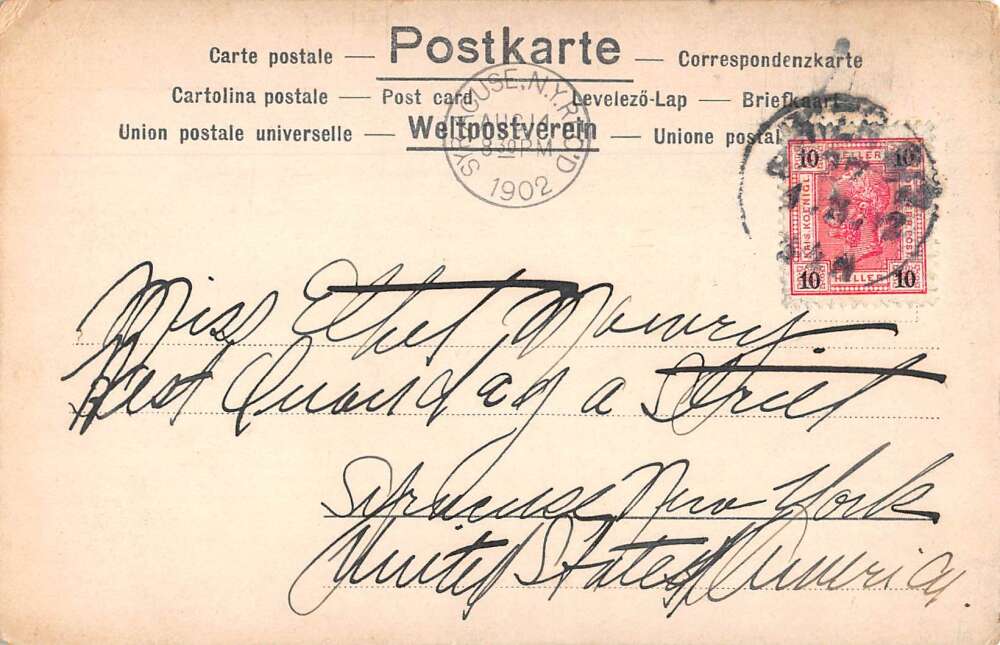 Postkarte
Carte postale — — Correspondenzkarte
Cartolina postale — Post card Levelező-Lap — Briefkaart
Union postale universelle — Weltpostverein — Unione postal
SYRACUSE, N.Y. REC'D
AUG 14
8 30 PM
1902
10 HELLER 10
KAIS. KOENIGL
10 HELLER 10
Miss Ethel Mowry
West Onondaga Street
Syracuse New York
United States America